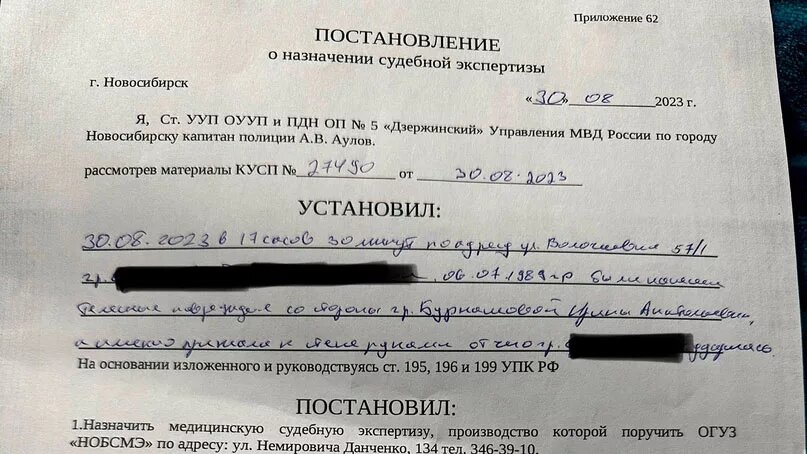 Приложение 62
ПОСТАНОВЛЕНИЕ
о назначении судебной экспертизы
г. Новосибирск
«30» 08 2023 г.
Я, Ст. УУП ОУУП и ПДН ОП № 5 «Дзержинский» Управления МВД России по городу
Новосибирску капитан полиции А.В. Аулов.
рассмотрев материалы КУСП № 27490 от 30.08.2023
УСТАНОВИЛ:
30.08.2023 в 17 часов 30 минут по адресу ул. Волочаевская 57/1
гр. , 06.07.1989 гр были нанесены
телесные повреждения со стороны гр. Бурнашовой Ирины Анатольевны,
а именно прижала к стене руками от чего гр. ударилась.
На основании изложенного и руководствуясь ст. 195, 196 и 199 УПК РФ
ПОСТАНОВИЛ:
1.Назначить медицинскую судебную экспертизу, производство которой поручить ОГУЗ
«НОБСМЭ» по адресу: ул. Немировича Данченко, 134 тел. 346-39-10.